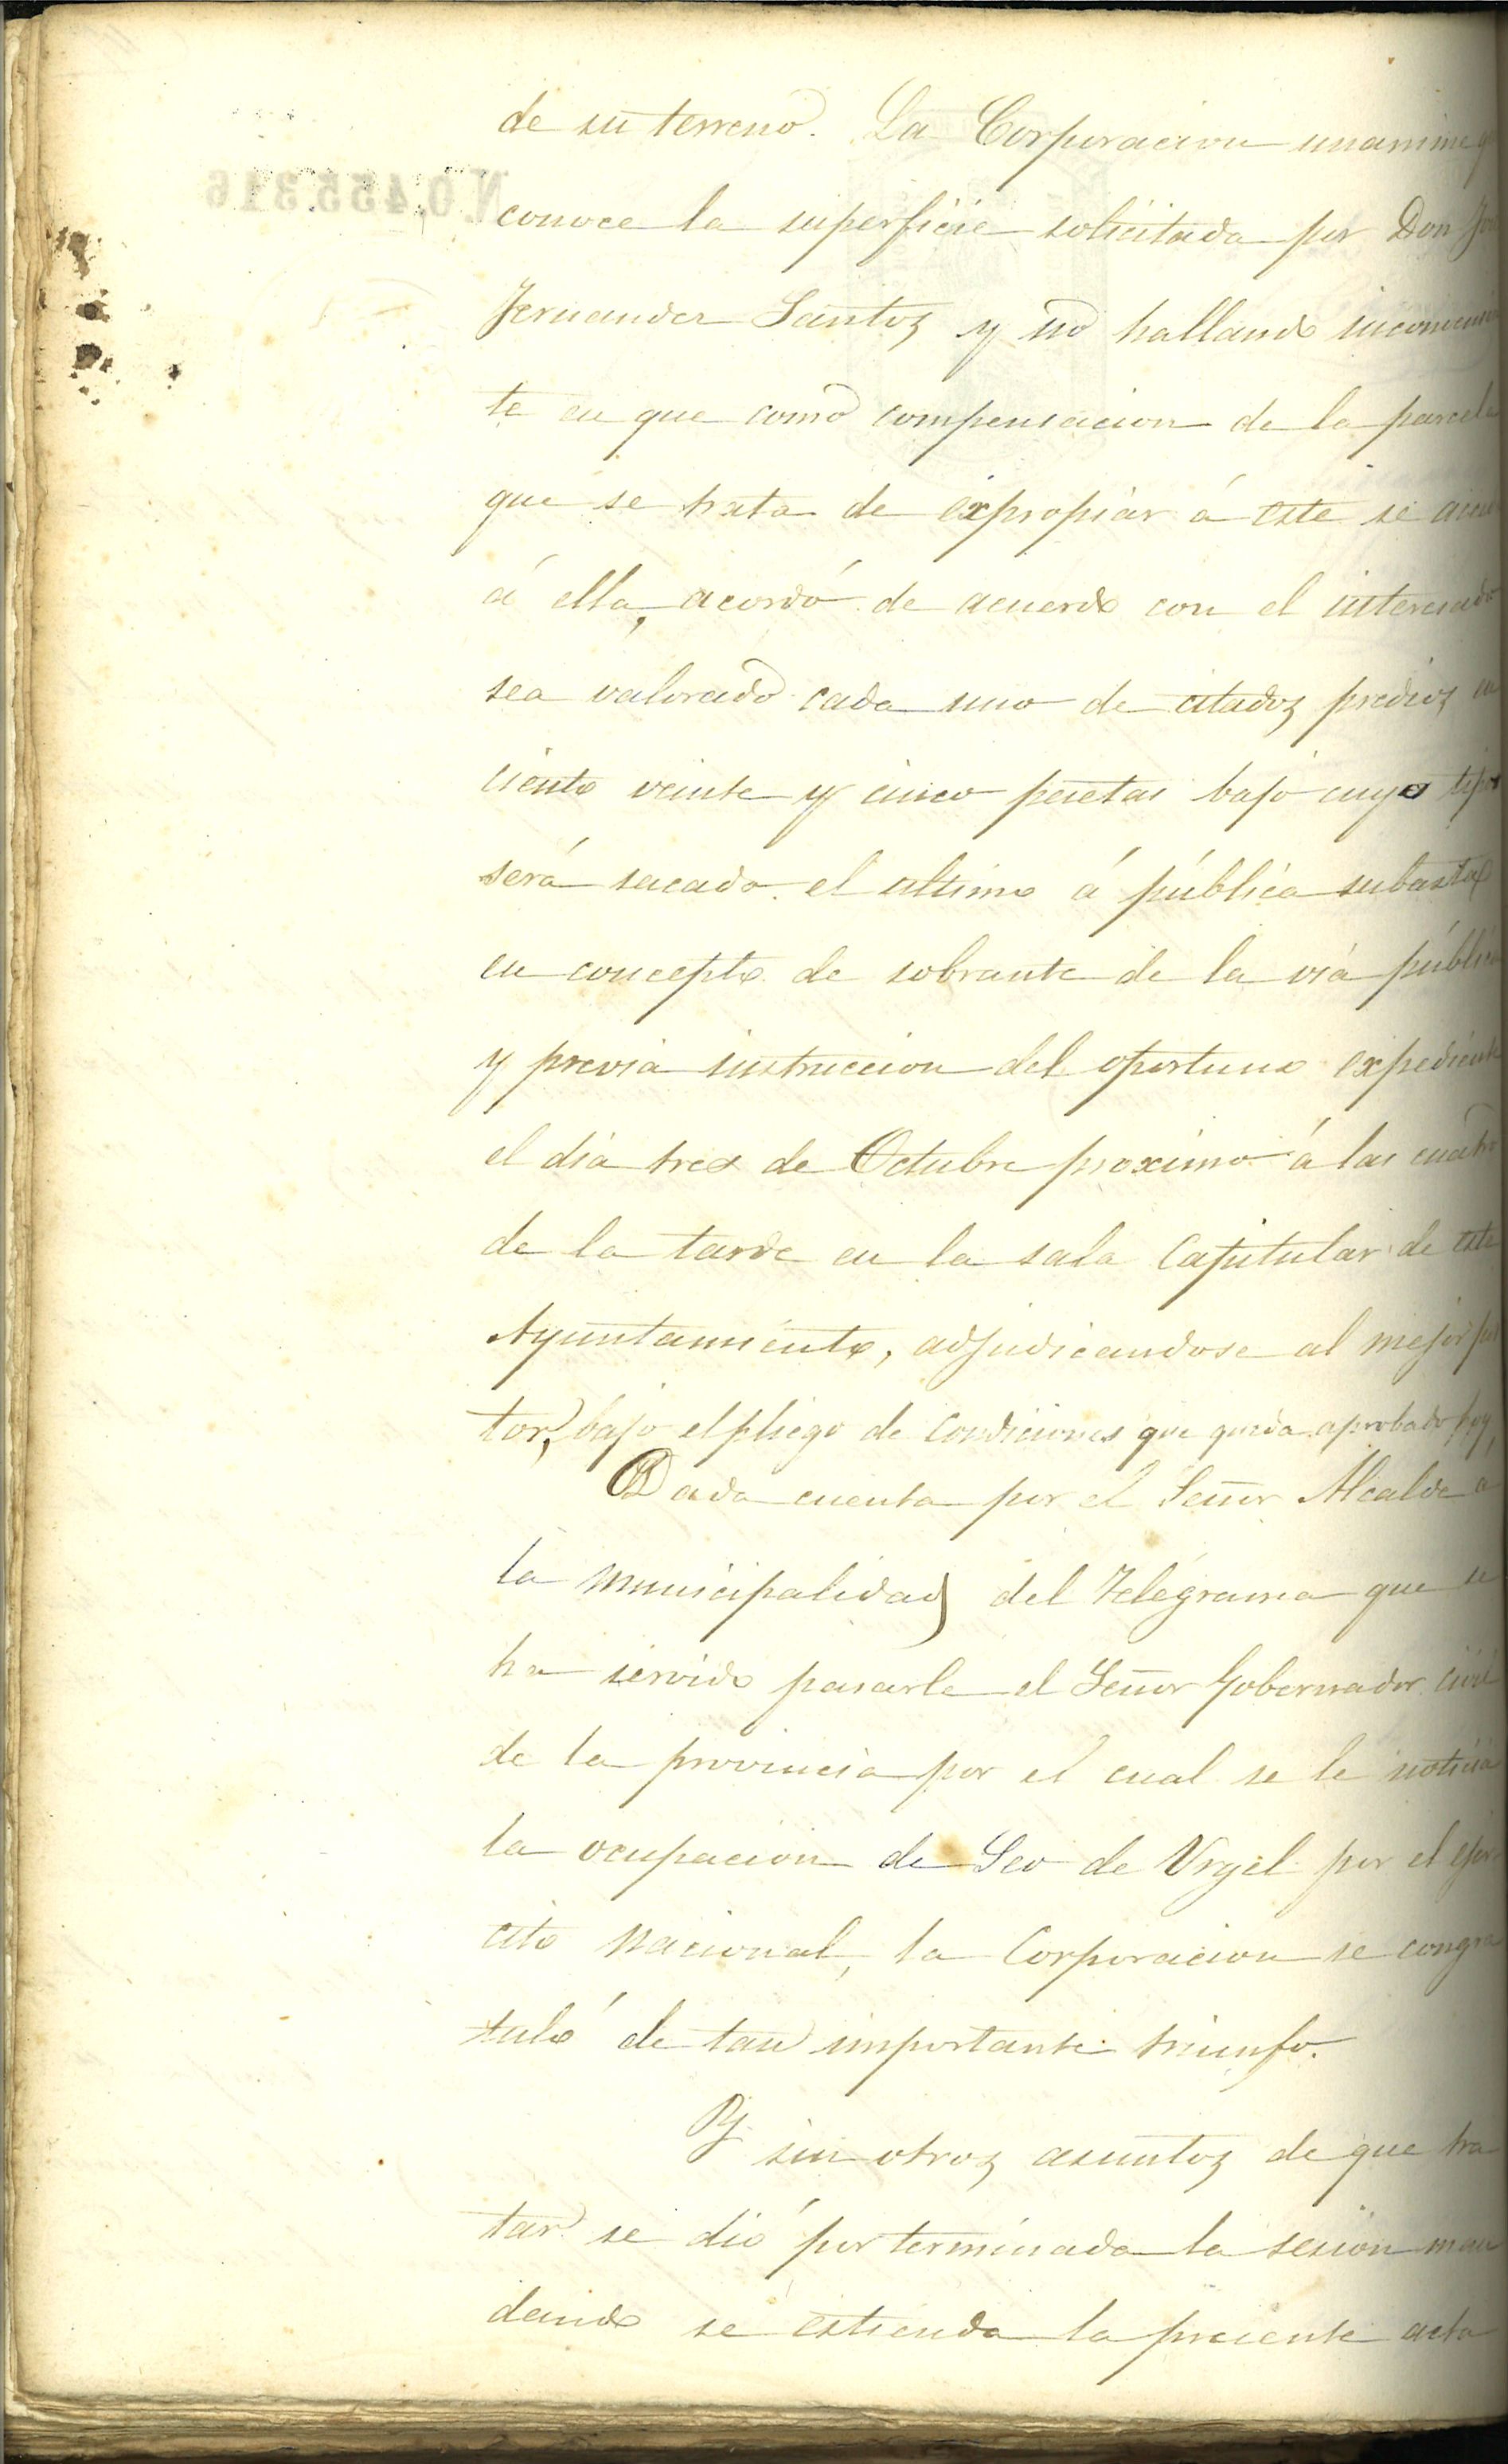 de su terreno. La Corporacion unanime que
conoce la superficie solicitada por Don José
Fernandez Santos y no hallando inconvenien
te en que como compensacion de la parcela
que se trata de expropiar á este se
á ella, acordó de acuerdo con el interesado
sea valorado cada uno de citados predios en
ciento veinte y cinco pesetas bajo cuyo tipo
será sacado el ultimo á pública subasta
en concepto de sobrante de la via pública
y previa instruccion del oportuno expediente
el dia tres de Octubre proximo á las cuatro
de la tarde en la sala Capitular de este
Ayuntamiento, adjudicandose al mejor pos
tor, bajo el pliego de condiciones que queda aprobado hoy,
Dada cuenta por el Señor Alcalde a
la municipalidad del Telégrama que se
ha servido pasarle el Señor Gobernador civil
de la provincia por el cual se le noticia
la ocupacion de Seo de Urgel por el ejer
cito nacional, la Corporacion se congra
tuló de tan importante triunfo.
Y sin otros asuntos de que tra
tar se dió por terminada la sesion man
dando se estienda la presente acta
N.0.455.316